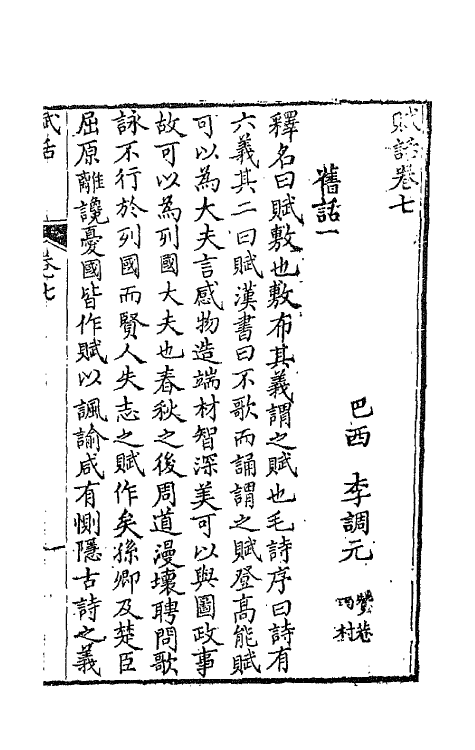 賦話卷七
巴西 李調元
舊話一
釋名曰賦敷也敷布其義謂之賦也毛詩序曰詩有
六義其二曰賦漢書曰不歌而誦謂之賦登高能賦
可以為大夫言感物造端材智深美可以與圖政事
故可以為列國大夫也春秋之後周道漫壞聘問歌
詠不行於列國而賢人失志之賦作矣孫卿及楚臣
屈原離讒憂國皆作賦以諷諭咸有惻隱古詩之義
賦話
卷七
一